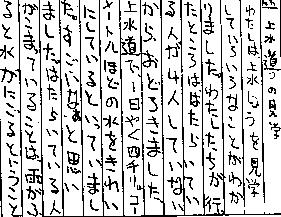 上水道の見学
わたしは上水じょうを見学
していろいろなことがわか
りました。わたしたちが行っ
たところははたらいてい
る人が4人していない
からおどろきました。
上水道で、1日やく四千リュコ
メートルほどの水をきれい
にしているといっていまし
た。すごいなあと思い
ました。はたらいている人
がこまっていることは雨がふ
ると水がにごるということ